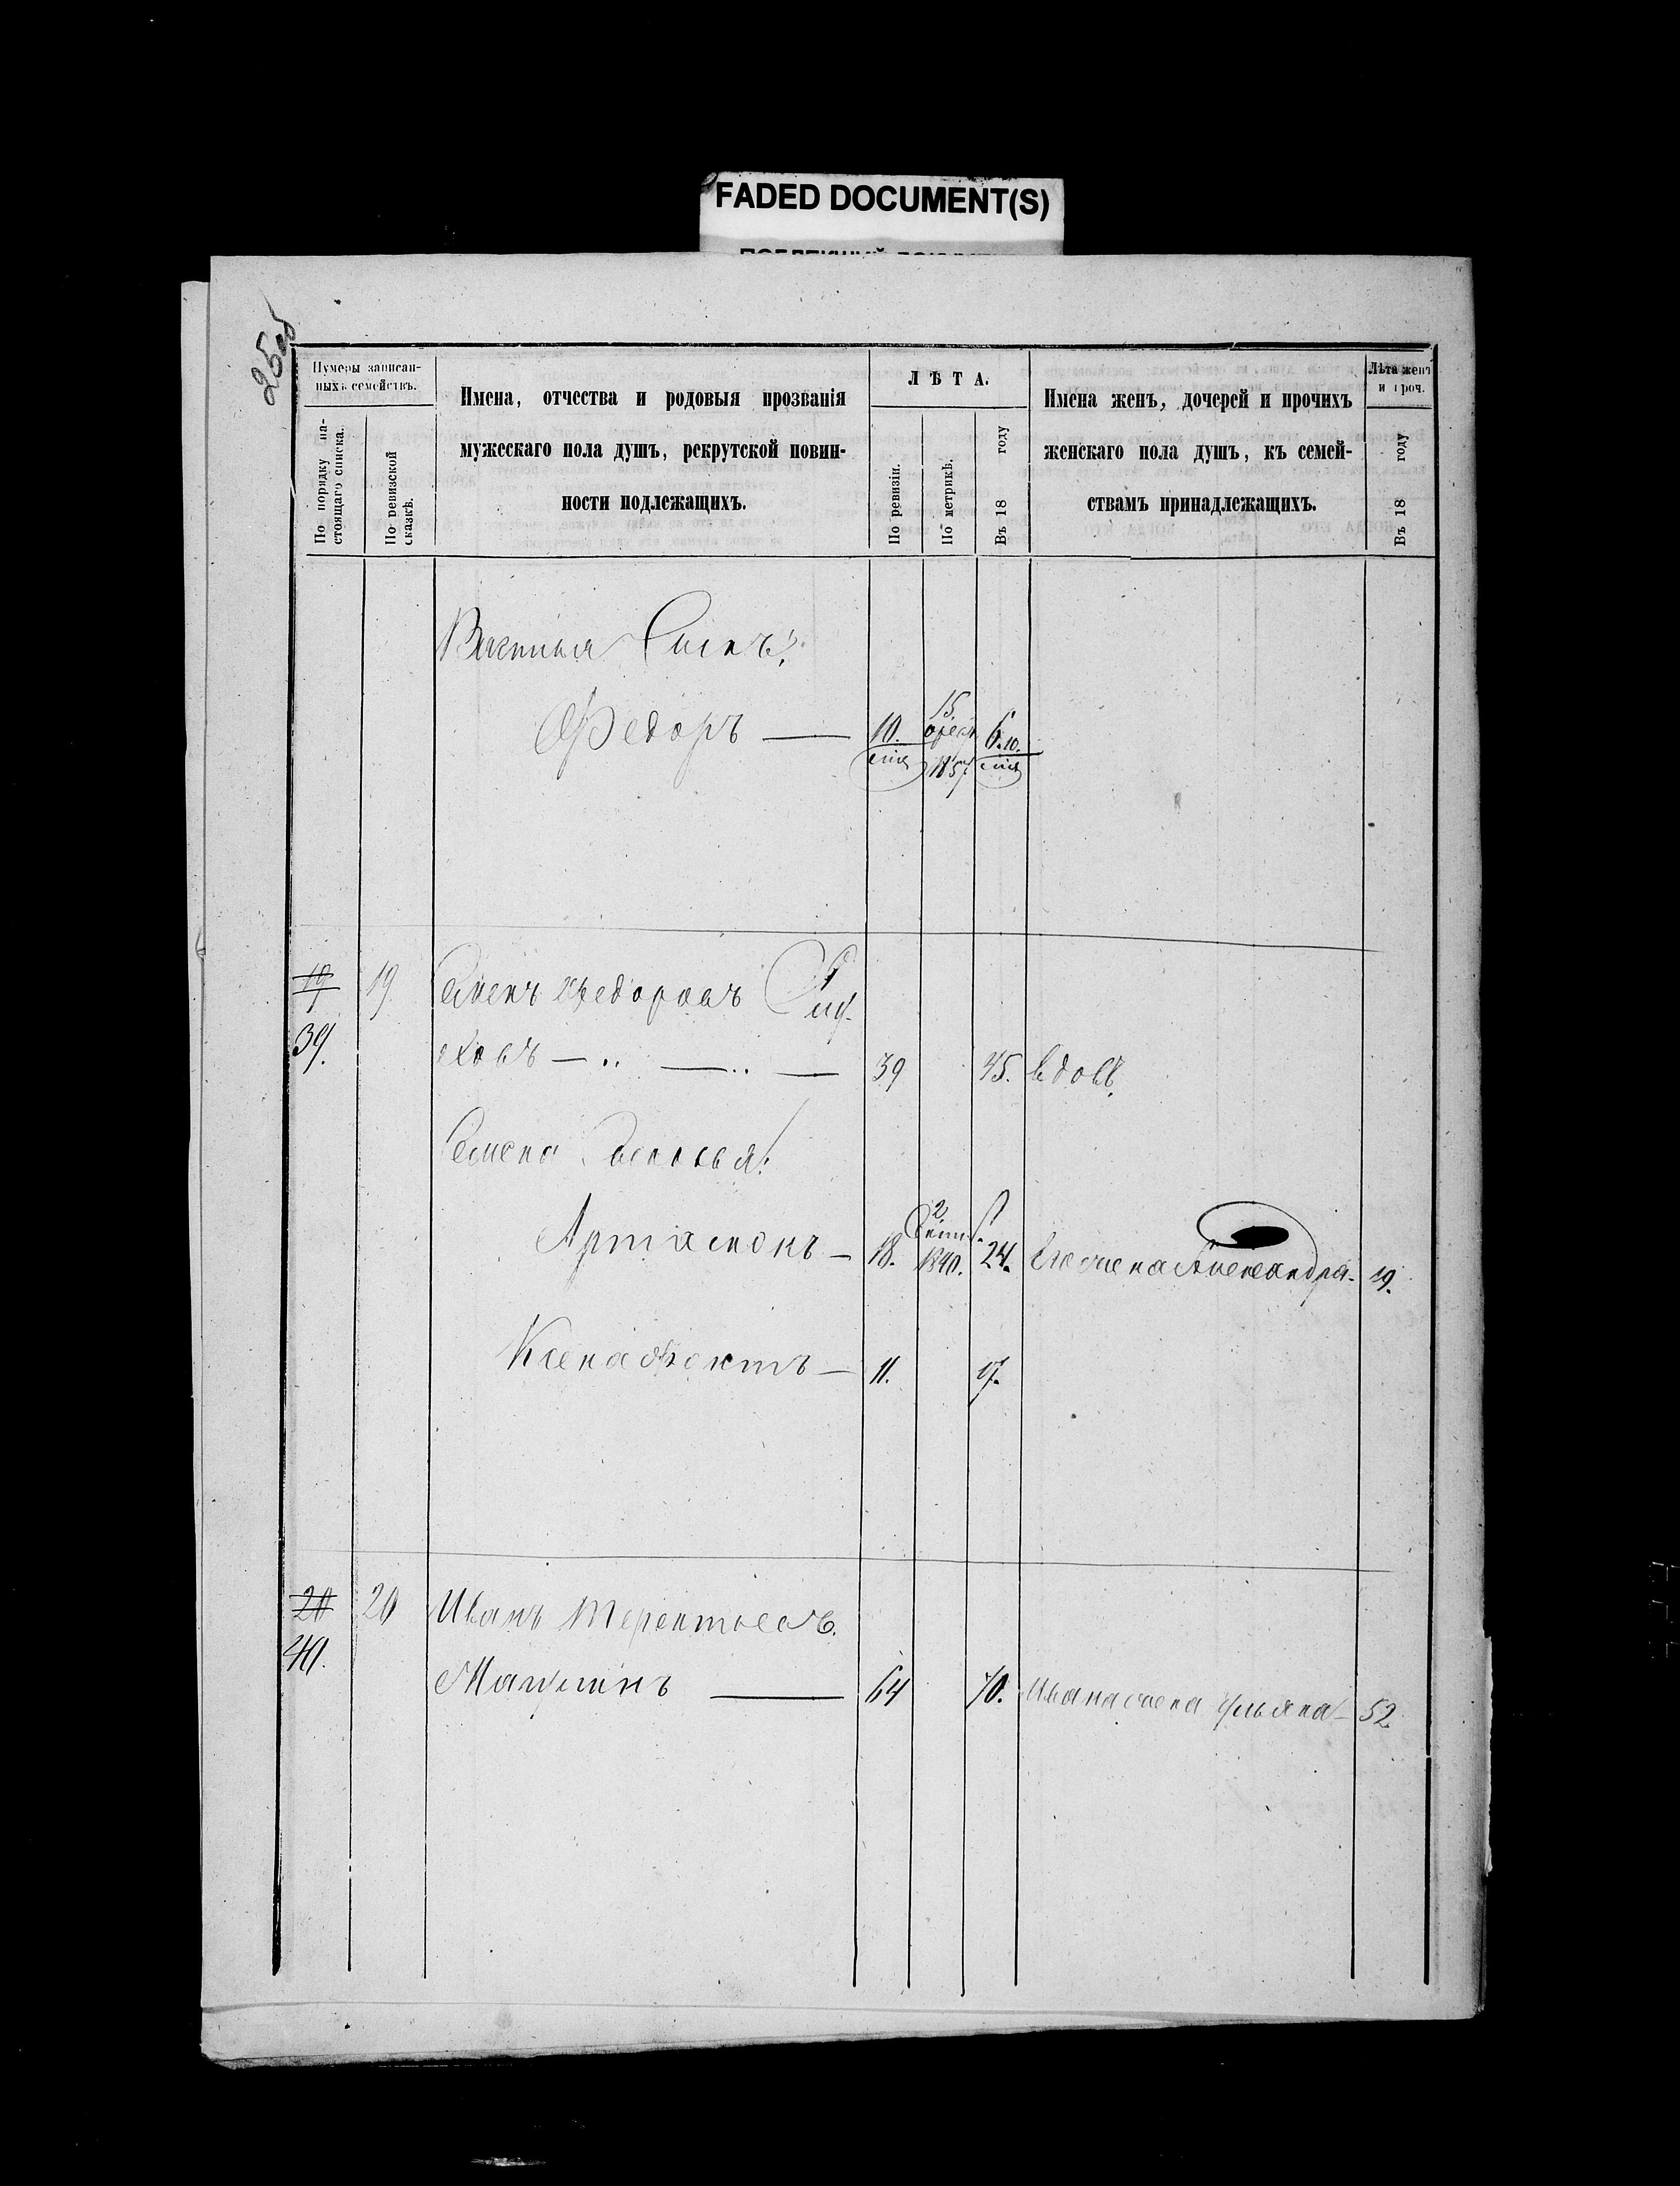 FADED DOCUMENT(S)
25об
Нумеры записан-
ныхъ семействъ.
По порядку на-
стоящаго списка.
По ревизской
сказкѣ.
Имена, отчества и родовыя прозванія
мужескаго пола душъ, рекрутской повин-
ности подлежащихъ.
ЛѢТА.
По ревизіи.
По метрикѣ.
Въ 18 году
Имена женъ, дочерей и прочихъ
женскаго пола душъ, къ семей-
ствамъ принадлежащихъ.
Лѣта женъ
и проч.
Въ 18 году
Сынъ:
Федоръ — 10. 15 6. 10.
1857
19 19 Семенъ Федоровъ
39. — 39 45. вдовъ.
Семена сыновья:
Артамонъ — 18. 2 Сент. 1840. 24. Его жена Александра 19.
Ксенофонтъ — 11. 17.
20 20 Иванъ Терентьевъ
40. — 64 70. Ивана жена Ульяна — 52.